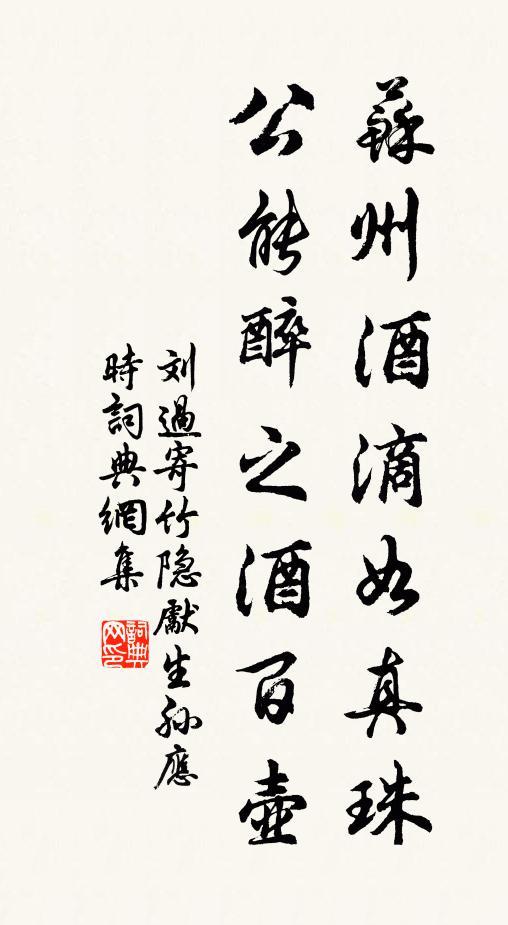 蘇州酒滴如真珠
公能醉之酒百壺
刘過寄竹隐獻生孙應
時詞典網集
詞典网印